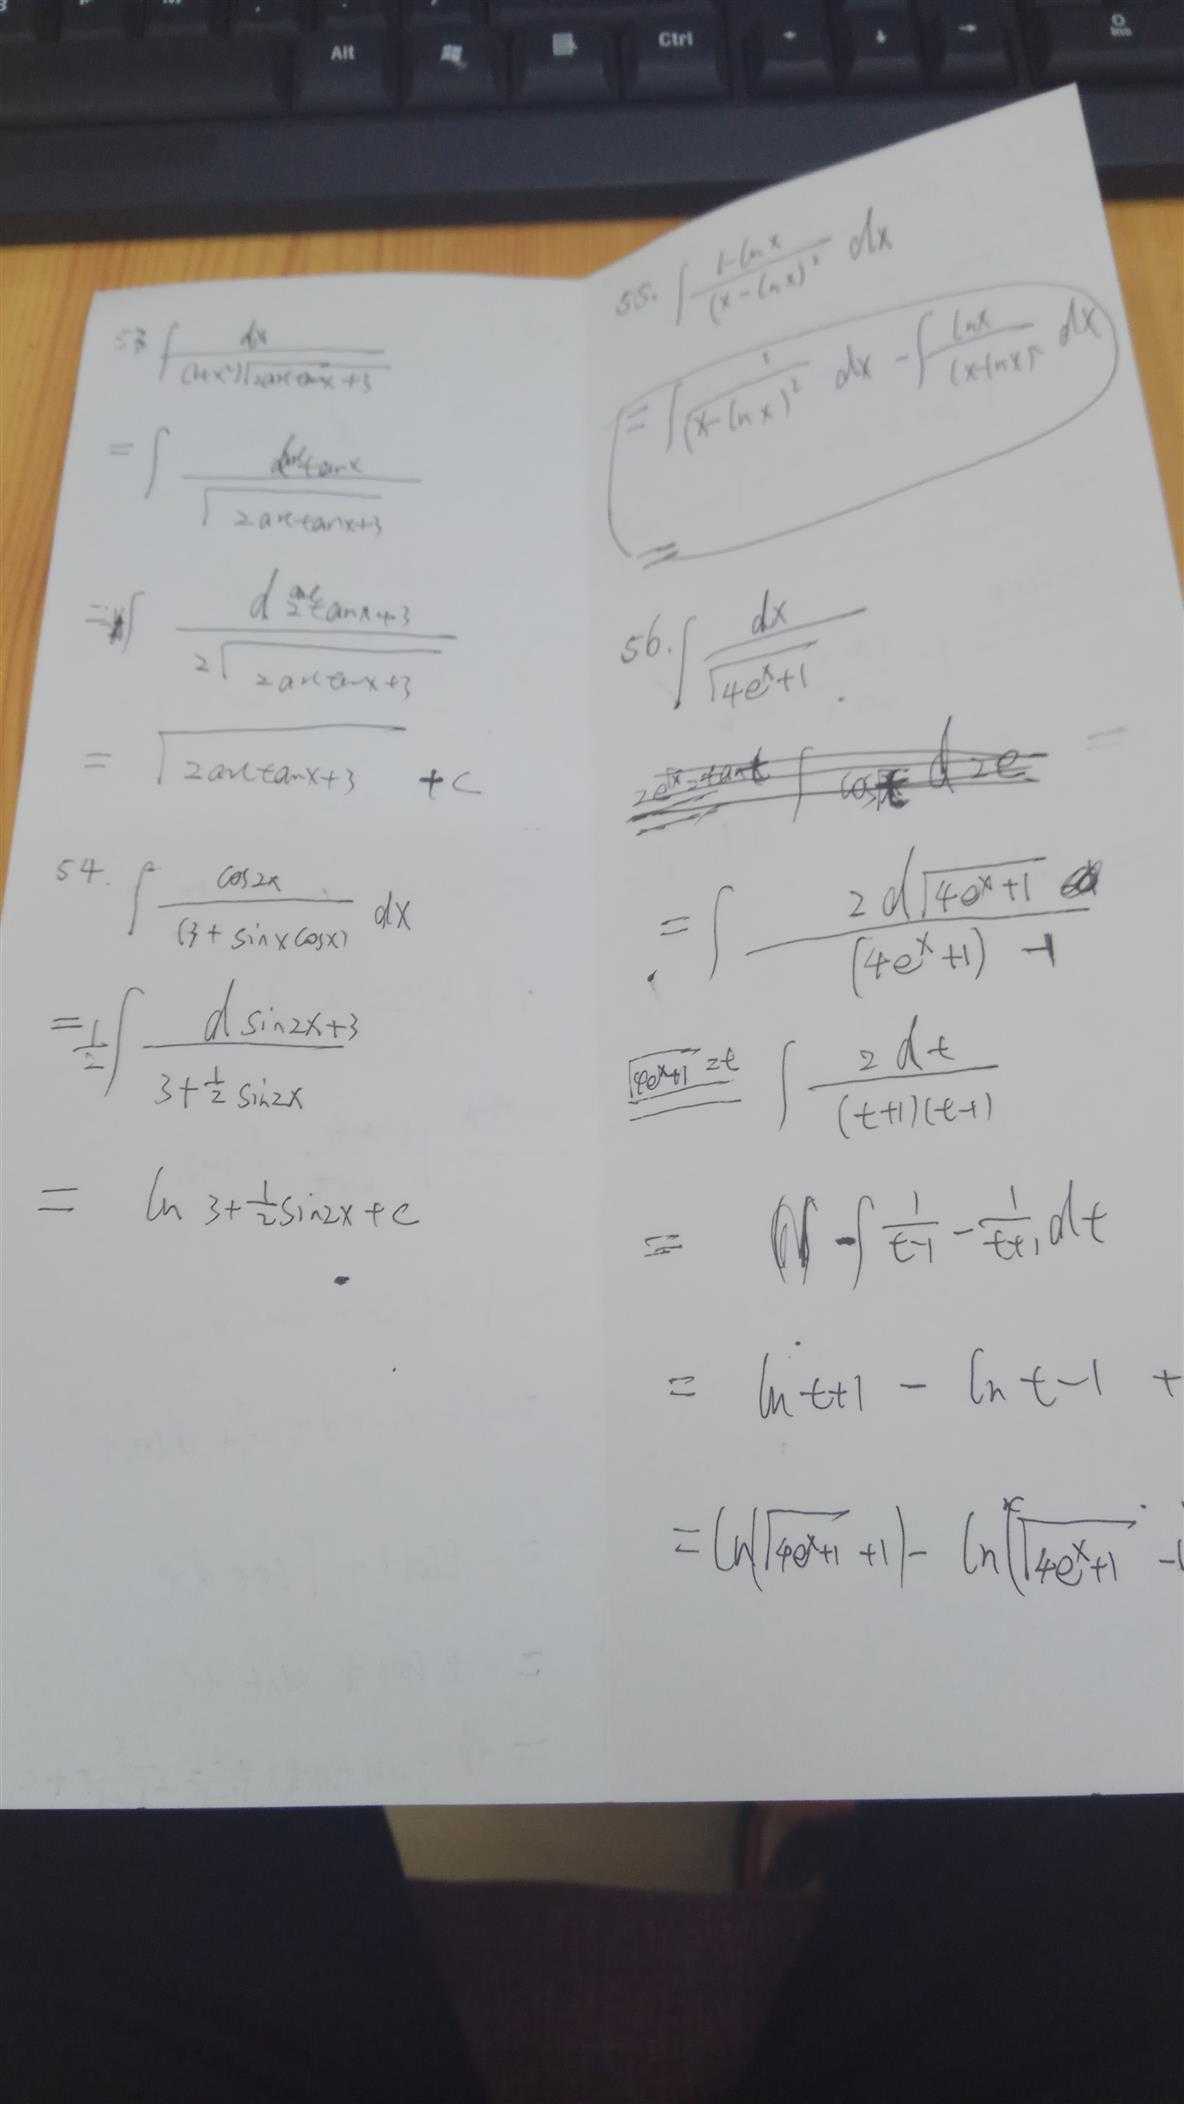 Alt
Ctrl
Ins
53 ∫ dx / (1+x²)√(2arctanx+3)
= ∫ d arctanx / √(2arctanx+3)
= ∫ d 2arctanx+3 / 2√(2arctanx+3)
= √(2arctanx+3) + c
54. ∫ cos2x / (3+sinxcosx) dx
= 1/2 ∫ d sin2x+3 / 3+1/2 sin2x
= ln 3+1/2 sin2x+c
55. ∫ 1-lnx / (x-lnx)² dx
= ∫ 1 / (x-lnx)² dx - ∫ lnx / (x-lnx)² dx
=
56. ∫ dx / √(4eˣ+1)
=
= ∫ 2d√(4eˣ+1) / (4eˣ+1) -1
√(4eˣ+1) = t ∫ 2dt / (t+1)(t-1)
= - ∫ 1/t-1 - 1/t+1 dt
= ln t+1 - ln t-1 +
= ln(√(4eˣ+1) +1) - ln(√(4eˣ+1) -1